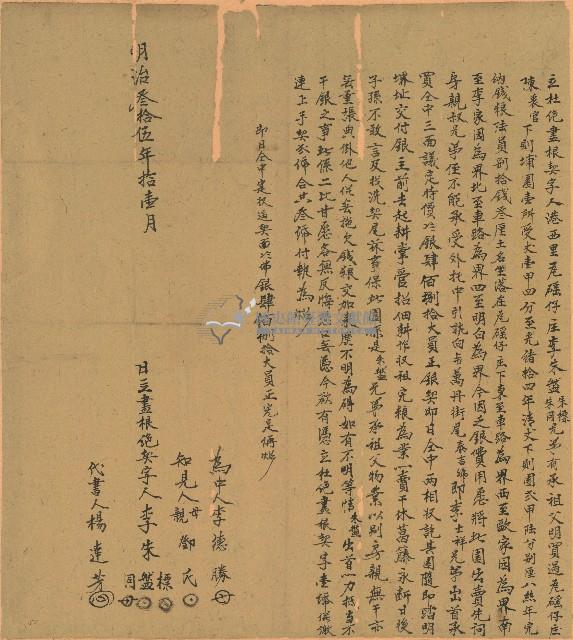 立杜絕盡根契字人港西里㡳磘仔庄李朱盤朱標朱同兄弟有承祖父明買過㡳磘仔庄
下則埔園壹所受丈壹甲四分至光緒拾四年清丈下則園弍甲陸分捌厘八絲年完
納錢粮陸員捌拾錢叁厘土名坐落在㡳磘仔庄下東至車路為界西至歐家園為界南
至李家園為界北至車路為界四至明白為界今因乏銀費用愿將此園出賣先問
房親叔兄弟侄不能承受外托中引就向與萬丹街尾李吉編即李士祥兄弟出首承
買仝中三面議定時價六八銀肆佰捌拾大員正銀契即日仝中兩相收訖其園隨即踏明
堺址交付銀主前去起耕掌管招佃耕作收租完粮為業一賣千休葛藤永斷日後
子孫不敢言及找洗契尾訴事保此園係是朱盤兄弟承祖父物業以別房親無干亦
無重張典掛他人從無拖欠錢粮交加來歷不明為碍如有不明等情朱盤出首一力抵當不
干銀主之事此係二比甘愿各無反悔恐口無憑今欲有憑立杜絕盡根契字壹紙併繳
連上手契弍紙合共叁紙付執為炤
即日仝中寔收過契面六八佛銀肆佰捌拾大員正完足再炤
為中人李德勝
知見人母親鄭氏
明治叁拾伍年拾壹月　日立盡根絕契字人李朱標盤同
代書人楊達芳